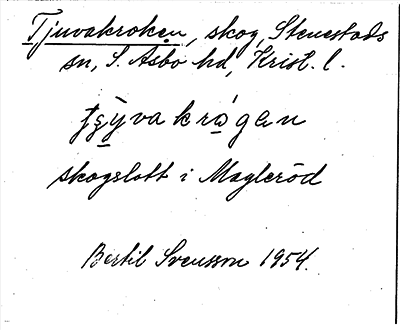 Tjuvakroken, skog, Stenestads
sn, S. Åsbo hd, Krist. l.
skogslott i Magleröd
Bertil Svensson 1954.